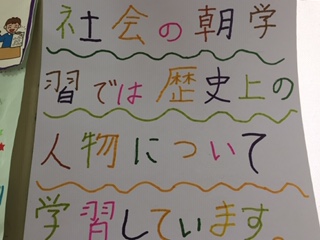 社会の朝学
習では歴史上の
人物について
学習しています。